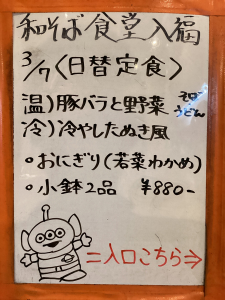 和そば食堂入福
3/7〈日替定食〉
温)豚バラと野菜 そば うどん
冷)冷やしたぬき風
○おにぎり(若菜わかめ)
○小鉢2品 ¥880-
=入口こちら⇒